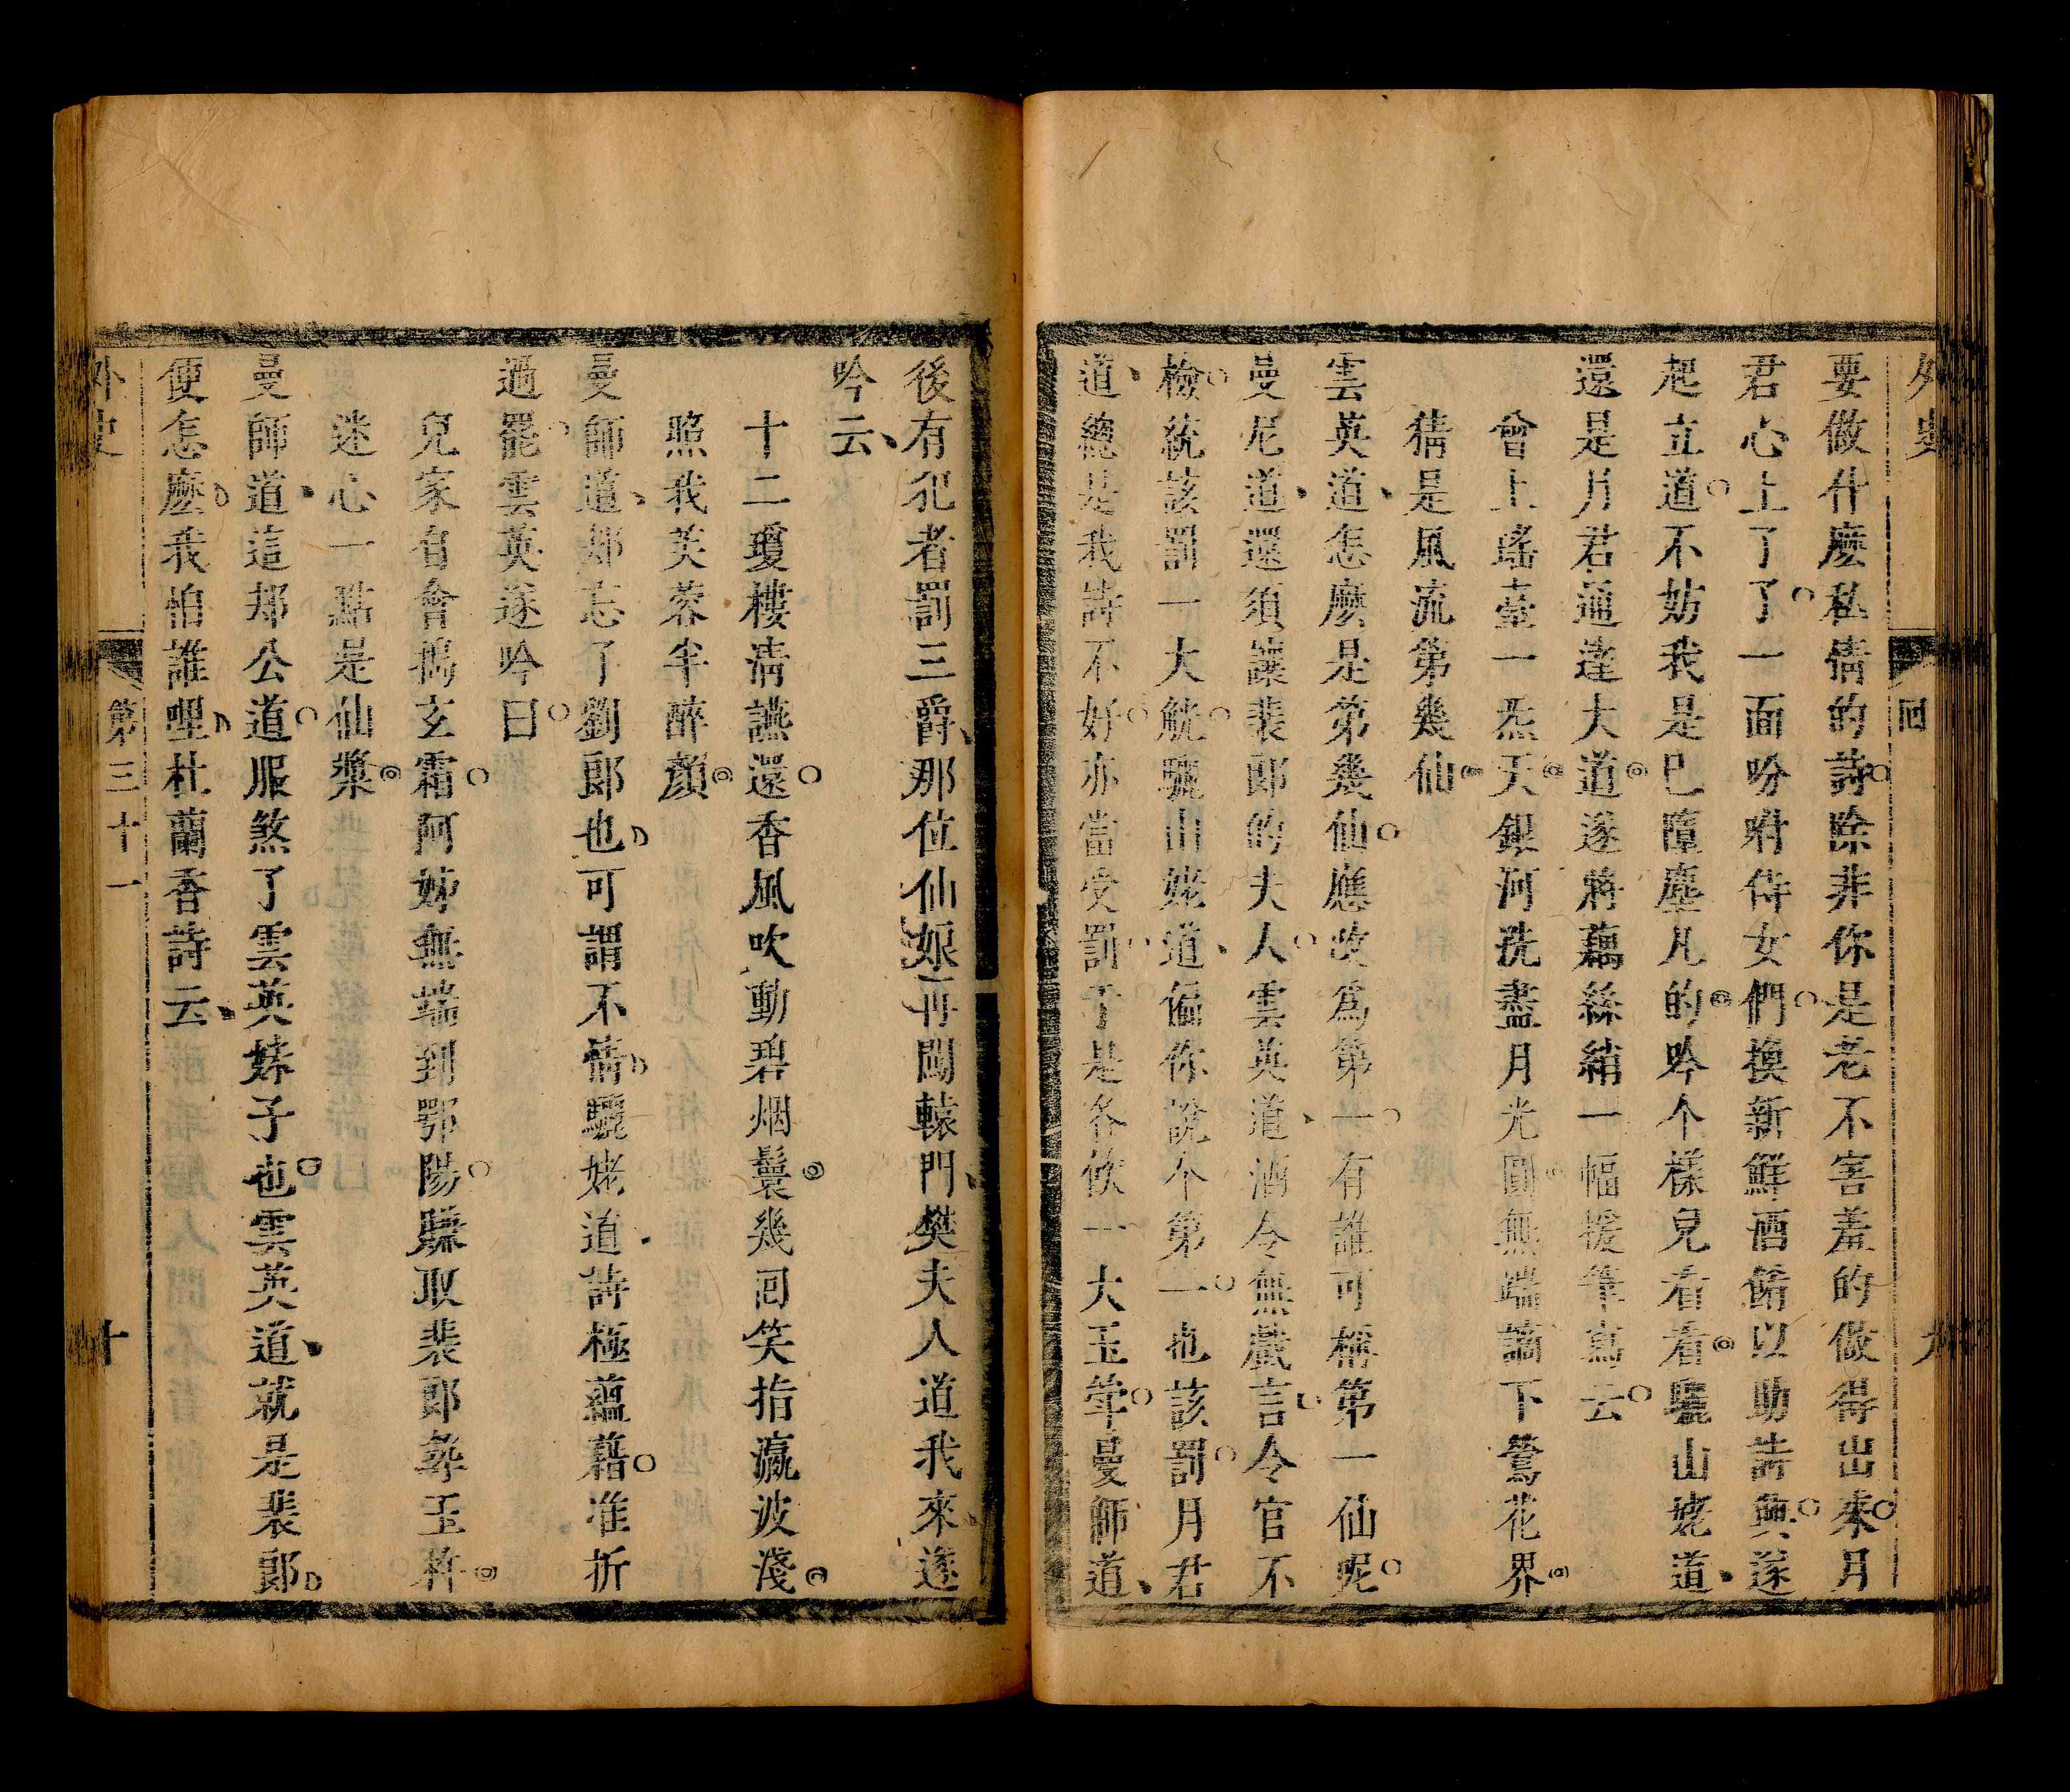 外史
回
九
要做什麽私情的詩除非你是老不害羞的做得出來月
君心上了了一面吩咐侍女們換新鮮酒餚以助詩興遂
起立道不妨我是已墮塵凡的吟个樣兒看看驪山姥道
還是月君通達大道遂將藕絲綃一幅援筆寫云
會上瑤臺一炁天銀河洗盡月光圓無端謫下鶯花界
猜是風流第幾仙
雲英道怎麽是第幾仙應改爲第一有誰可稱第一仙呢
曼尼道還須讓裴郎的夫人雲英道酒令無戲言令官不
檢統該罰一大觥驪山姥道偏你說个第一也該罰月君
道總是我詩不好亦當受罰于是各飲一大玉斝曼師道
後有犯者罰三爵那位仙娘再闖轅門樊夫人道我來遂
吟云
十二瓊樓淸讌還香風吹動碧烟鬟幾回笑指瀛波淺
照我芙蓉半醉顏
曼師道却忘了劉郎也可謂不情驪姥道詩極蘊藉准折
過罷雲英遂吟曰
兒家自會搗玄霜阿姊無端到鄂陽賺取裴郎尋玉杵
迷心一點是仙漿
曼師道這却公道服煞了雲英妹子也雲英道就是裴郎
便怎麽我怕誰哩杜蘭香詩云
外史
第三十一
十